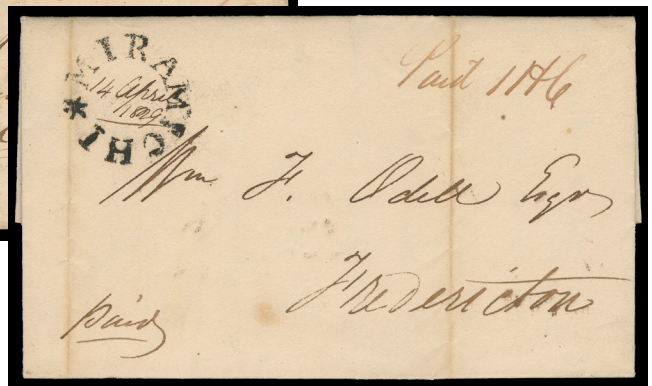 MIRAMICHI *
14 April
1829
Paid 11d
Wm F. Odell Esqr
Fredericton
paid